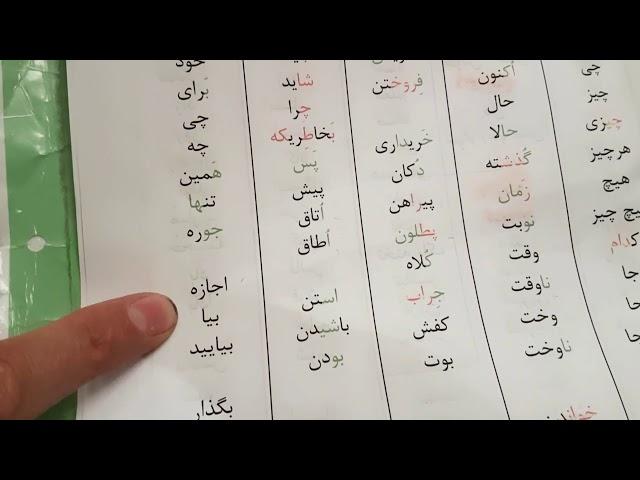 چی
چیز
چیزی
هرچیز
هیچ
هیچ چیز
کدام
جا
اُکنون
حال
حالا
گُذشته
زَمان
نوَبت
وقت
ناوقت
وخت
ناوخت
فِروختن
خَریداری
دُکان
پیراهن
پطلون
کُلاه
جِراب
کفش
بوت
شاید
چرا
بَخاطریکه
پَسّ
پیش
اُتاق
اُطاق
استن
باشیدن
بودن
خود
بَرای
چی
چه
هَمین
تنها
جوره
اجازه
بیا
بیایید
بگذار